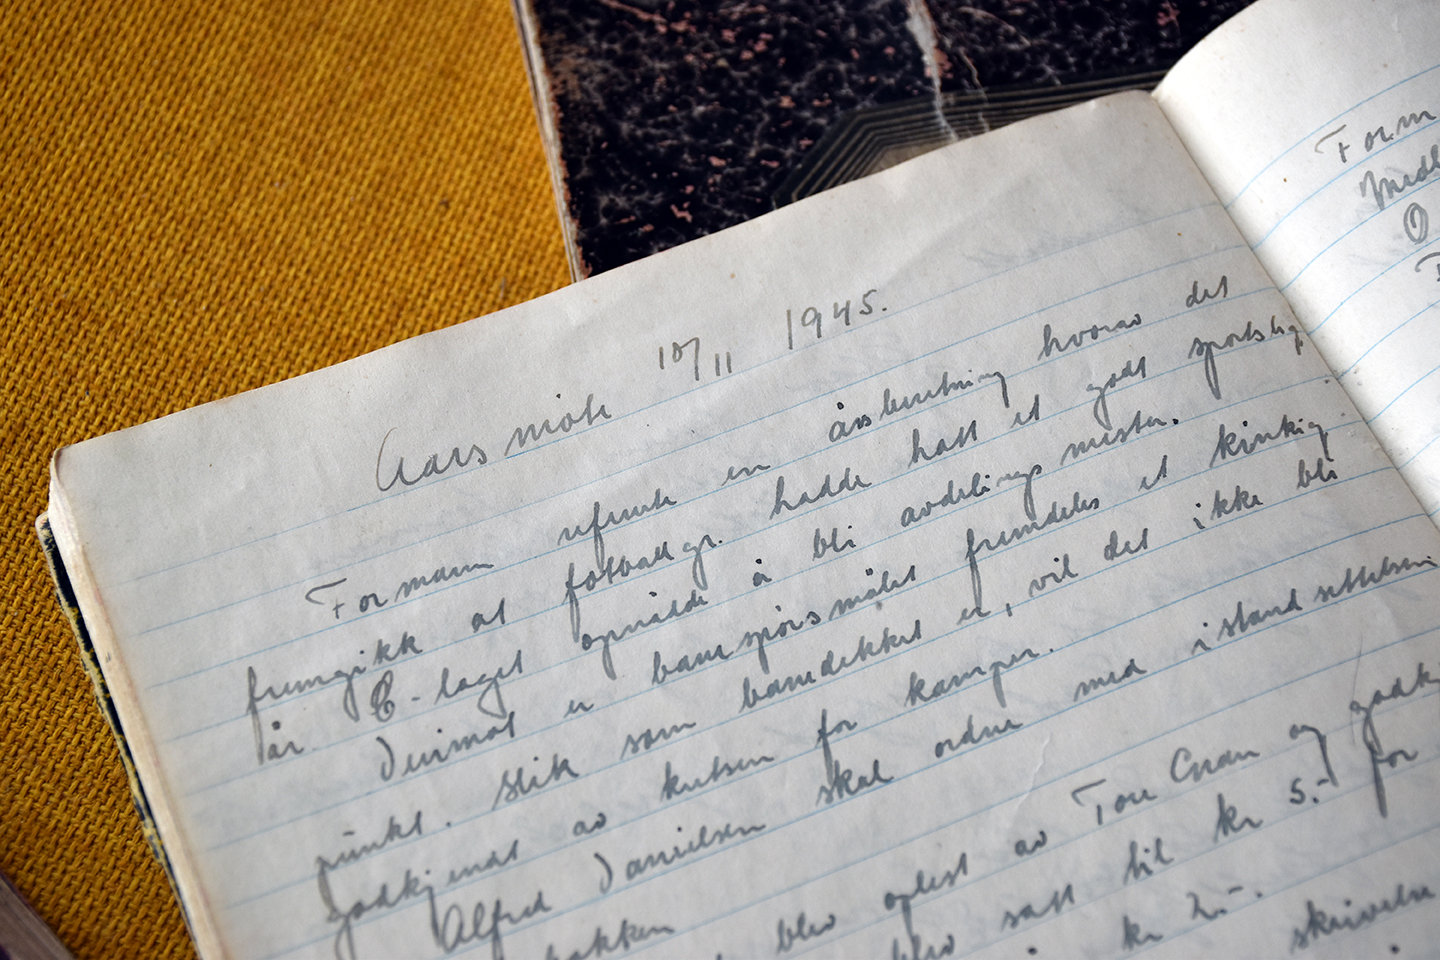 Aarsmöte 18/11 1945.
Formann refererte en årsberetning hvorav det
fremgikk at fotballgr. hadde hatt et godt sportslig
år. E-laget opnådde å bli avdelingsmester.
Derimot er banespörsmålet fremdeles et kinkig
punkt. Slik som banedekket er, vil det ikke bli
godkjendt av kretsen for kamper.
Alfred Danielsen skal ordne med istandsettelsen
bakken
blev oplest av Tore Cran og godkj
blev satt til kr 5.- for
i kr 2.-.
skrivelse
Form
Medl
O
F